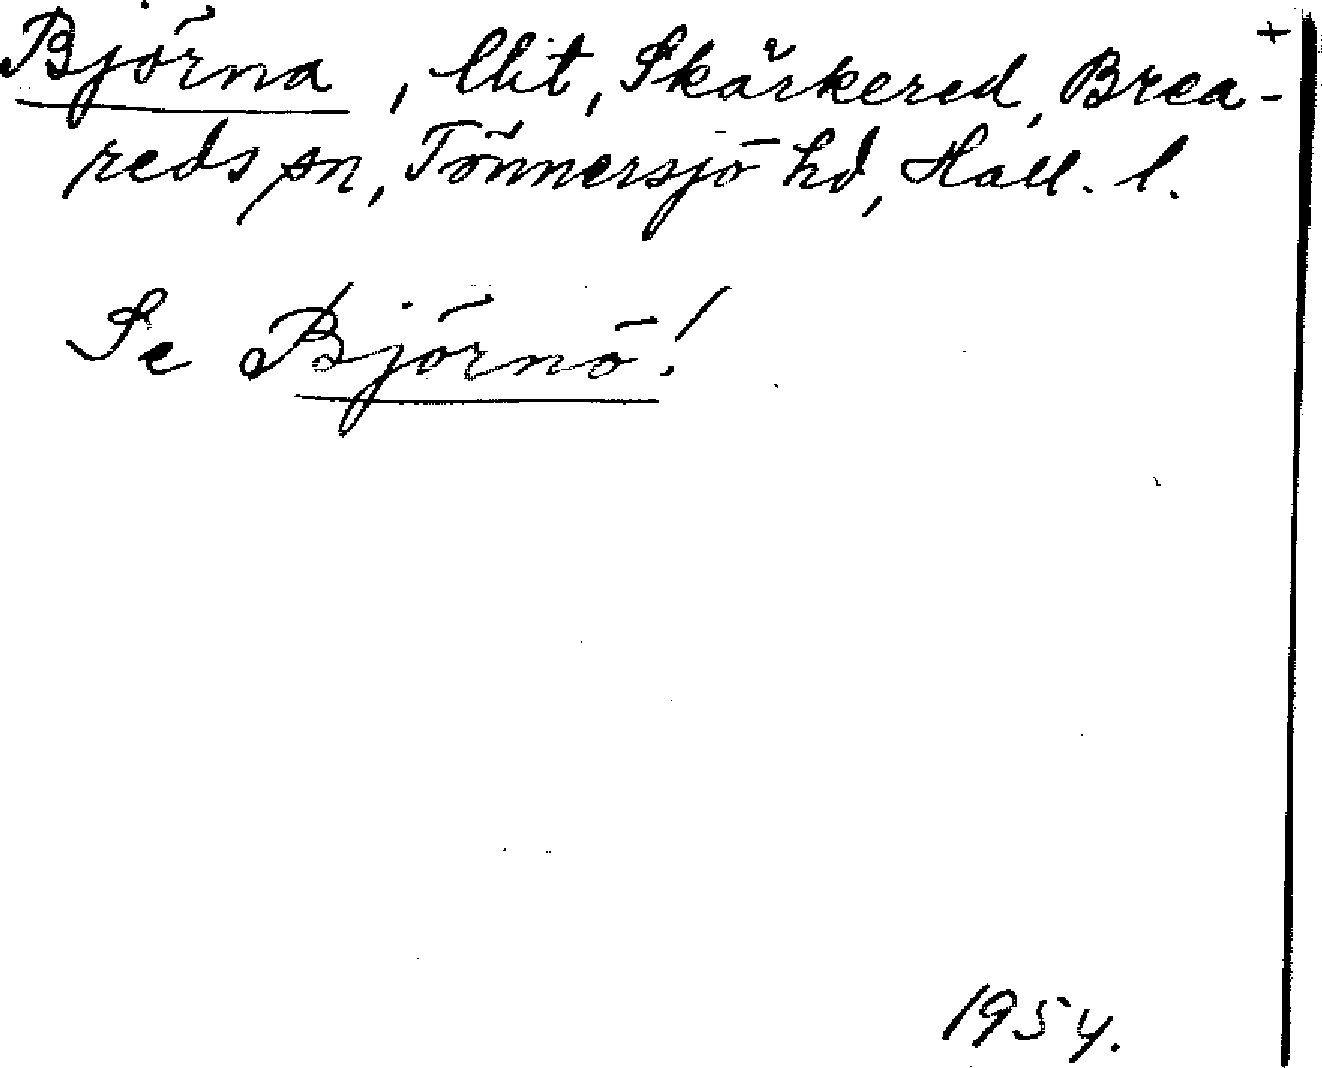 Björna, lht, Skärkered, Brea-
reds sn, Tönnersjö hd, Hall. l.
Se Björnö!
1954.